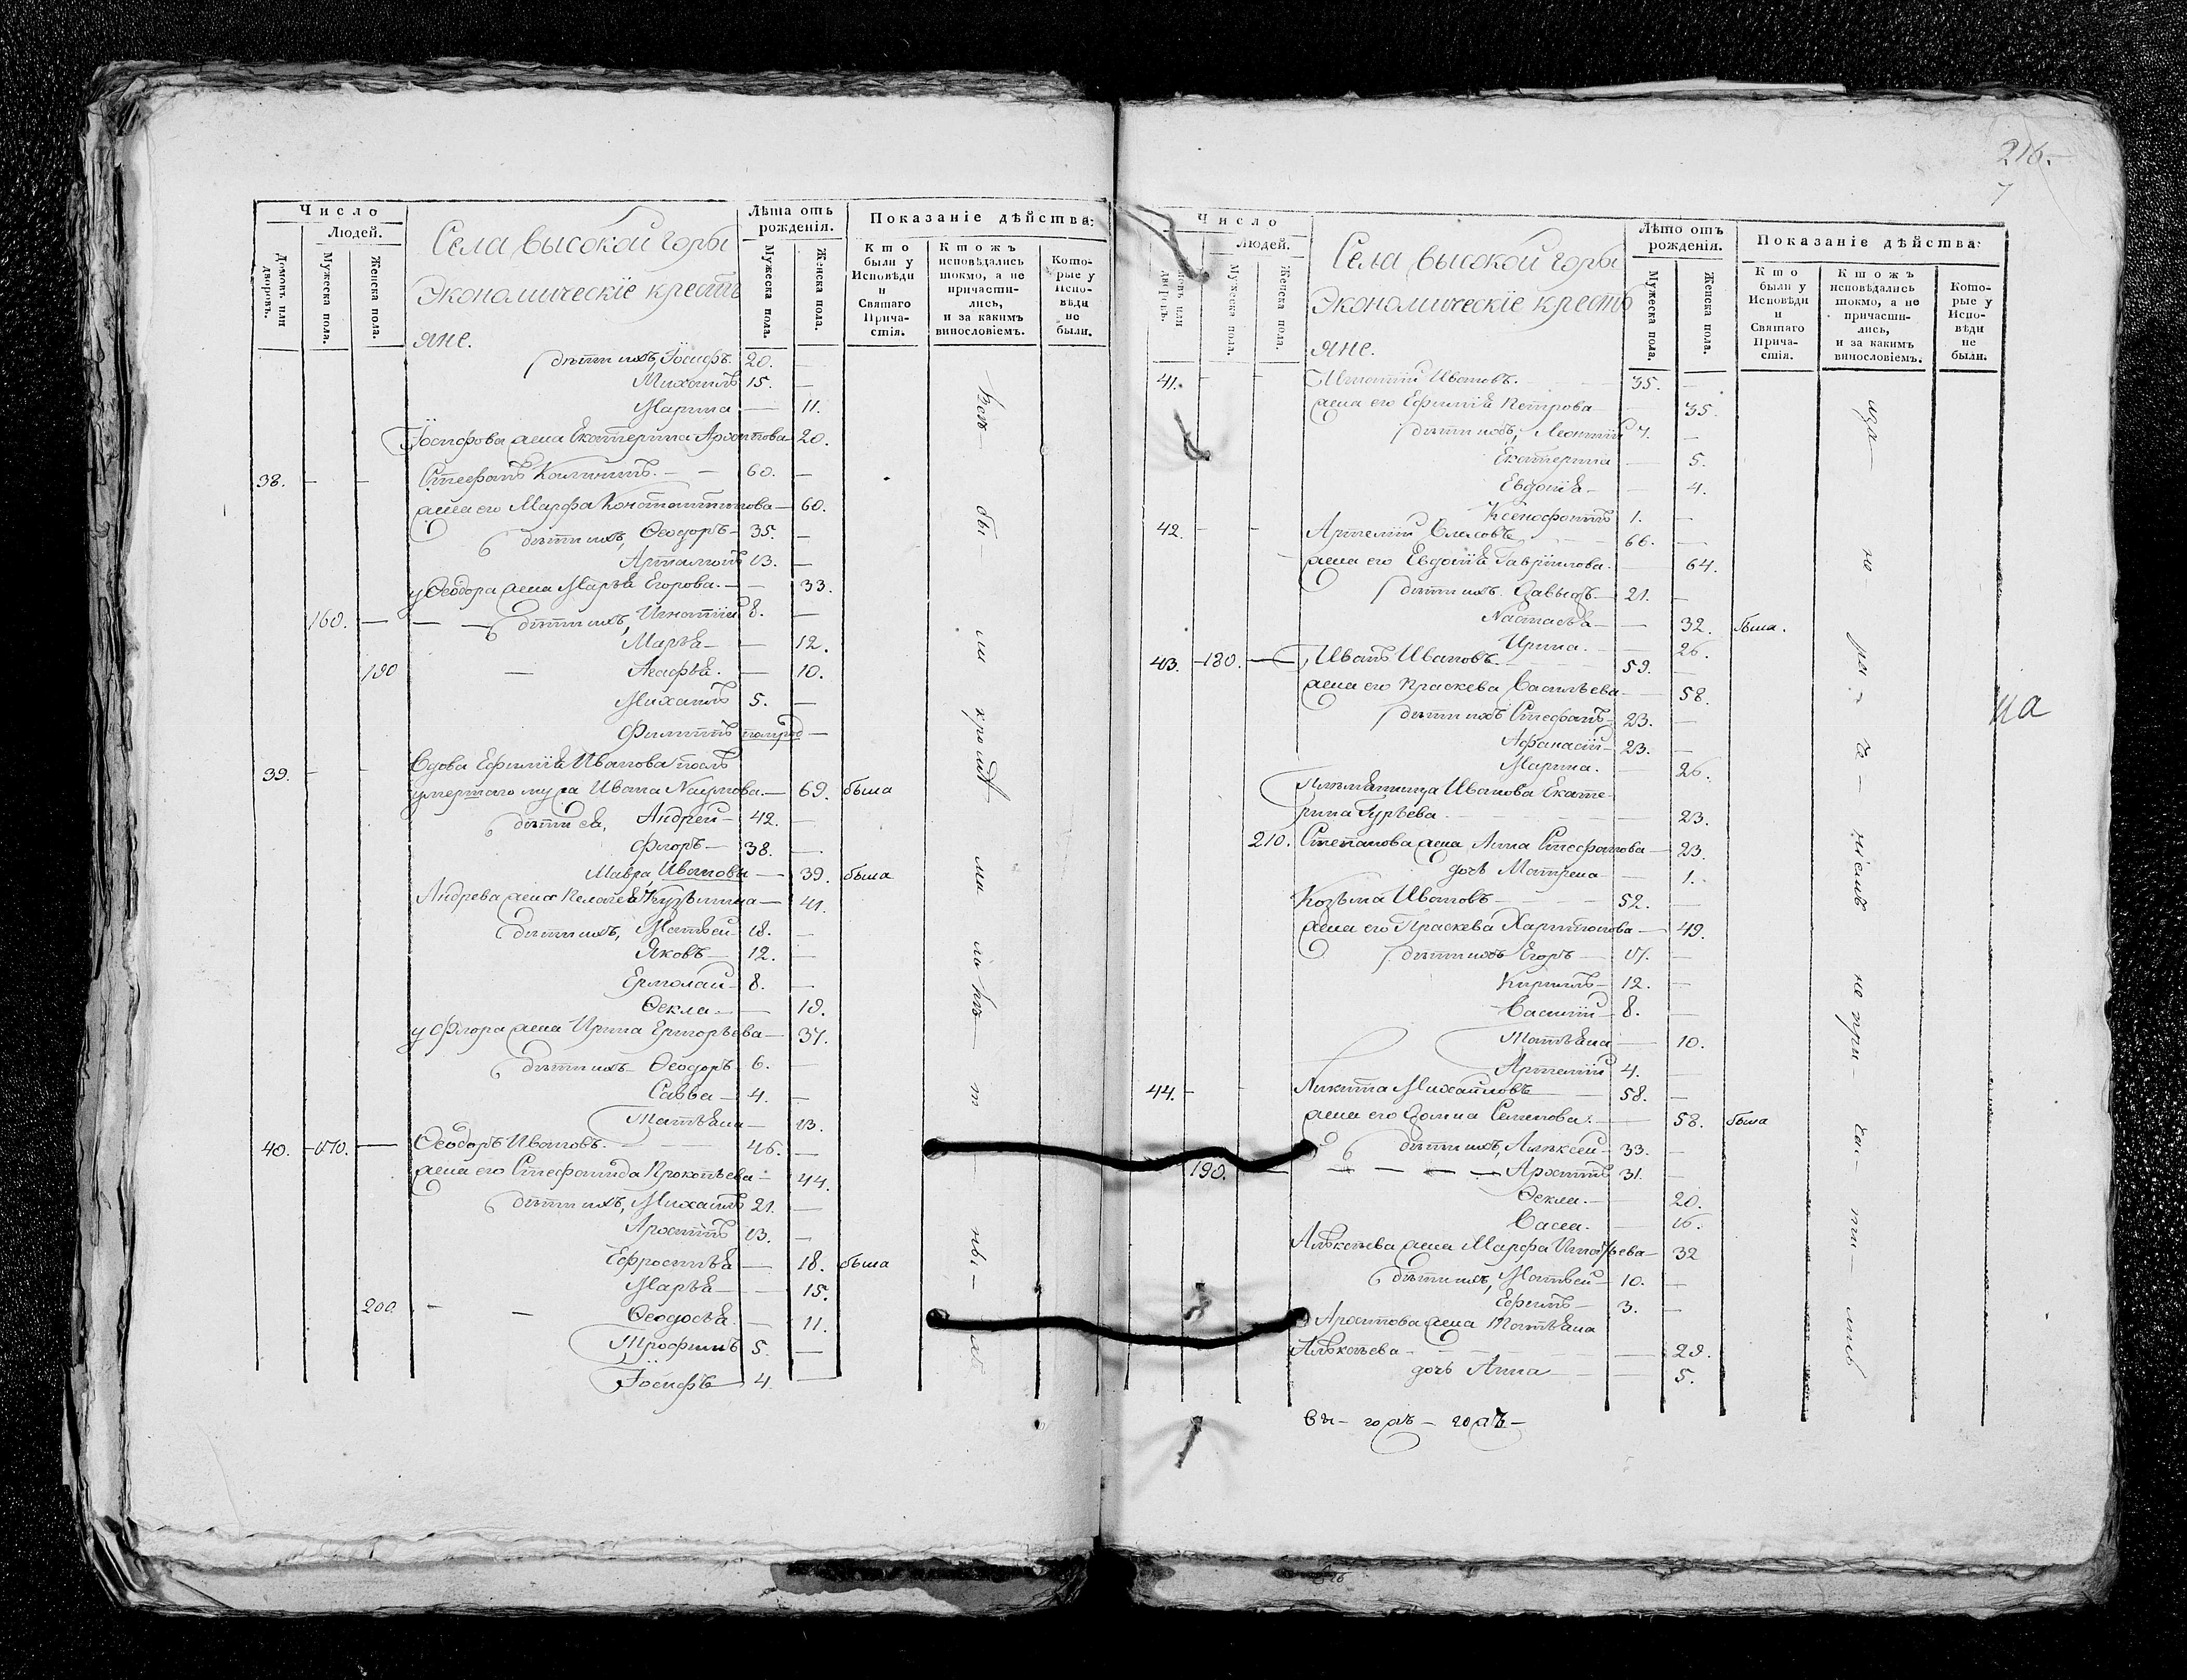 Число
Людей.
Домовъ или дворовъ.
Мужеска пола.
Женска пола.
Села высокой горы
Экономическіе кресть
яне.
Лѣта отъ рожденія.
Мужеска пола.
Женска пола.
Показаніе дѣйства:
Кто были у Исповѣди и Святаго Прича-стія.
Ктожъ исповѣдались токмо, а не причасти-лись, и за какимъ винословіемъ.
Кото-рые у Испо-вѣди не были.
дѣти ихъ, Іосифъ 20. —
Михаилъ 15. —
Марина — 11.
Іосифова жена Екатерина Архипова 20.
38. — — Стефанъ Калининъ. — — 60. —
жена его Марфа Константинова — 60.
дѣти ихъ, Ѳеодоръ — 35. —
Артамонъ 13. —
у Ѳеодора жена Марья Егорова. — — 33.
160. — — — дѣти ихъ, Игнатій 8. —
Марья — — 12.
190 — Агафья. — 10.
Михаилъ 5. —
Филиппъ —
39. — — Вдова Ефимія Иванова послѣ
умершаго мужа Ивана Наумова. — 69. была
дѣти ея, Андрей — 42. —
Флоръ — 38. —
Мавра Иванова — 39. была
Андрева жена Пелагея Кузьмина — 41.
дѣти ихъ, Матвей — 18. —
Яковъ — 12. —
Ермолай — 8. —
Ѳекла — — 19.
у Флора жена Ирина Григорьева — 37.
дѣти ихъ — Ѳеодоръ 6. —
Савва — 4. —
Татьяна — 13.
40. — 170. — Ѳеодоръ Ивановъ. — 46. —
жена его Стефанида Прокопьева — 44.
дѣти ихъ, Михаилъ 21. —
Архипъ 13. —
Ефросинья — 18. была
Марья — — 15.
200 — — Ѳеодосья. — 11.
Трофимъ 5. —
Іосифъ 4. —
216.
7
Число
Людей.
Мужеска пола.
Женска пола.
Села высокой горы
Экономическіе кресть
яне.
Лѣто отъ рожденія.
Мужеска пола.
Женска пола.
Показаніе дѣйства:
Кто были у Исповѣди и Святаго Прича-стія.
Ктожъ исповѣдались токмо, а не причасти-лись, и за какимъ винословіемъ.
Кото-рые у Испо-вѣди не были.
41. — — Игнатій Ивановъ. 35. —
жена его Ефимія Петрова — 35.
дѣти ихъ, Леонтій 7. —
Екатерина — 5.
Евдокія — — 4.
Ксенофонтъ 1. —
42. — — Артемій 66. —
жена его Евдокія Гаврилова. — 64.
дѣти ихъ. Давыдъ — 21. —
Настасья — — 32. была.
Ирина. — 26.
43. — 180. — Иванъ Ивановъ. 59. —
жена его Праскева Васильева — 58.
дѣти ихъ Стефанъ — 23. —
Афанасій — 23. —
Марина. — 26.
Племянница Иванова Екате-
рина Гурьева — 23.
210. Степанова жена Анна Стефанова — 23.
дочь Матрена — 1.
Козьма Ивановъ — 52. —
жена его Праскева Харитонова — 49.
дѣти ихъ Егоръ — 17. —
Кирилъ — 12. —
Василій — 8. —
Татьяна — 10.
Артемій 4. —
44. — — Никита Михайловъ — 58. —
жена его Домна Семенова. — 58. была
дѣти ихъ, Алексей — 33. —
190. — — — — — Архипъ 31. —
Ѳекла. — 20.
Васса. — 16.
Алексѣева жена Марфа — 32
дѣти ихъ, Матвей — 10. —
Ефимъ — 3. —
Архипова жена Татьяна
Алексѣева — 29.
дочь Анна — — 5.
на